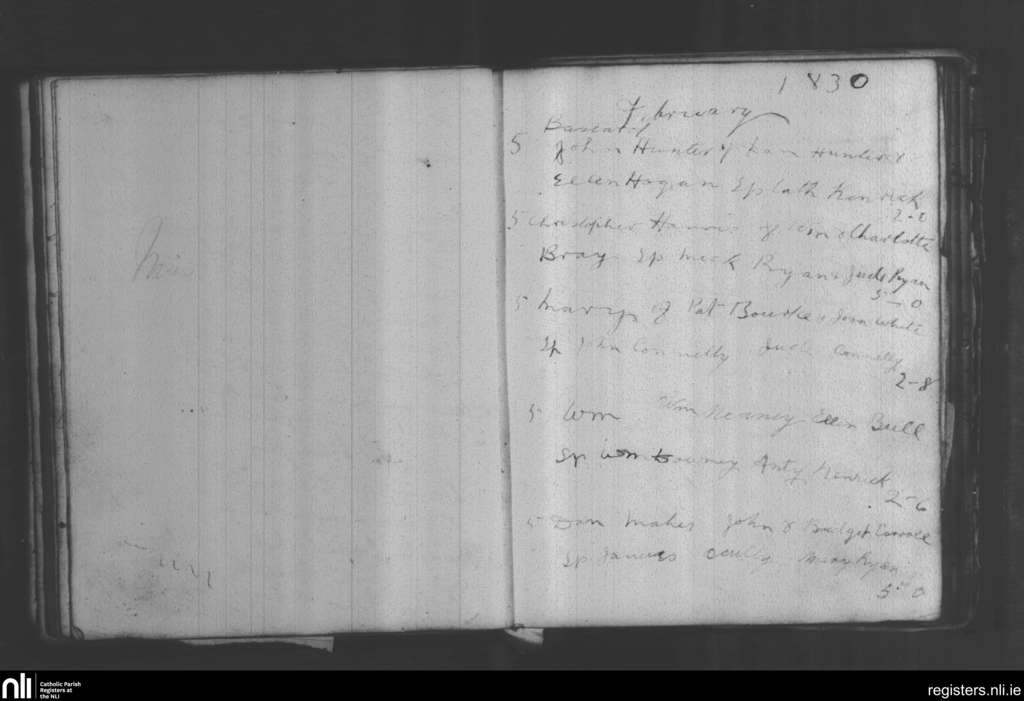 1830
February
5 John Hunter of Dan Hunter &
Ellen Hogan Sp Cath Kenrick
2-0
5 Christopher Harris of Wm & Charlotte
Bray Sp Mick Ryan & Jude Ryan
5-0
5 Mary of Pat Bourke & Joan White
Sp John Connelly Connelly
2-8
5 Wm Wm Ellen Bull
Sp Wm Anty Kenrick
2-6
5 Dan Maher John & Bridget
Sp James Mary Ryan
5 0
nli
Catholic Parish
Registers at
the NLI
registers.nli.ie